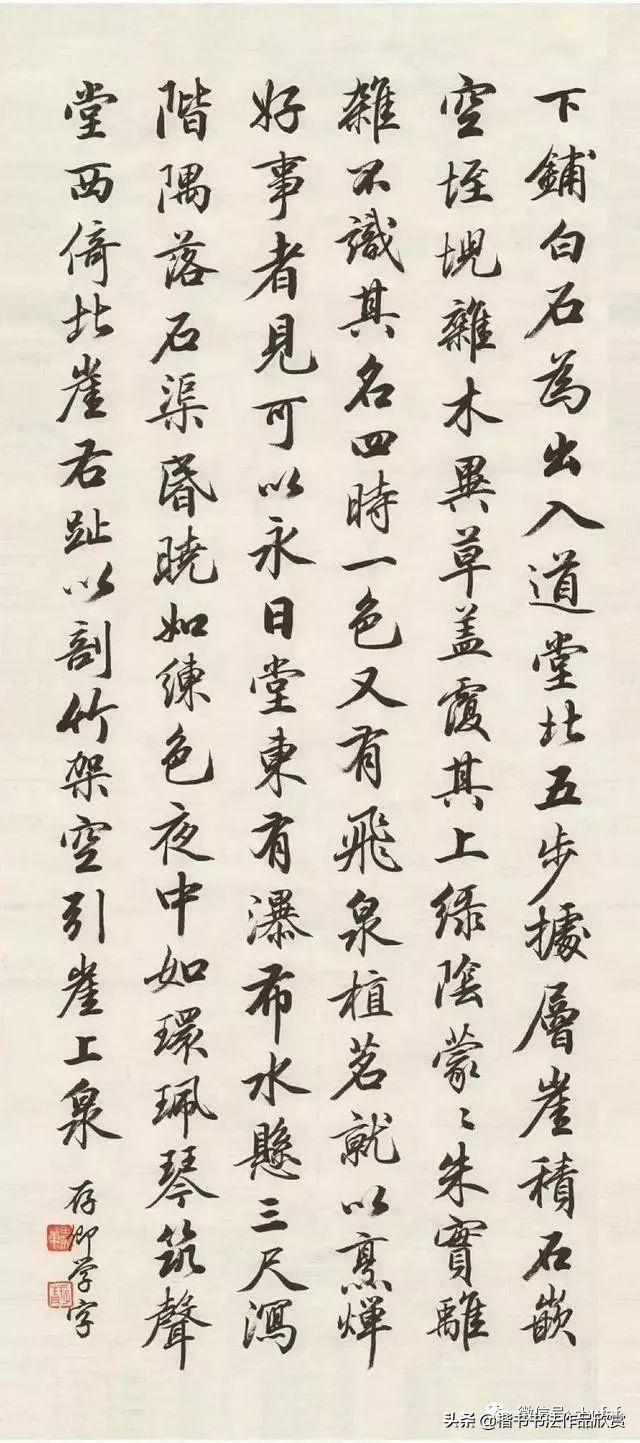 下鋪白石為出入道堂北五步據層崖積石嵌
空垤堄雜木異草盖覆其上綠陰蒙〻朱實離
雜不識其名四時一色又有飛泉植茗就以烹燀
好事者見可以永日堂東有瀑布水懸三尺瀉
階隅落石渠昬曉如練色夜中如環珮琴筑聲
堂西倚北崖右趾以剖竹架空引崖上泉
存卿学字
微信号
头条@楷书书法作品欣赏